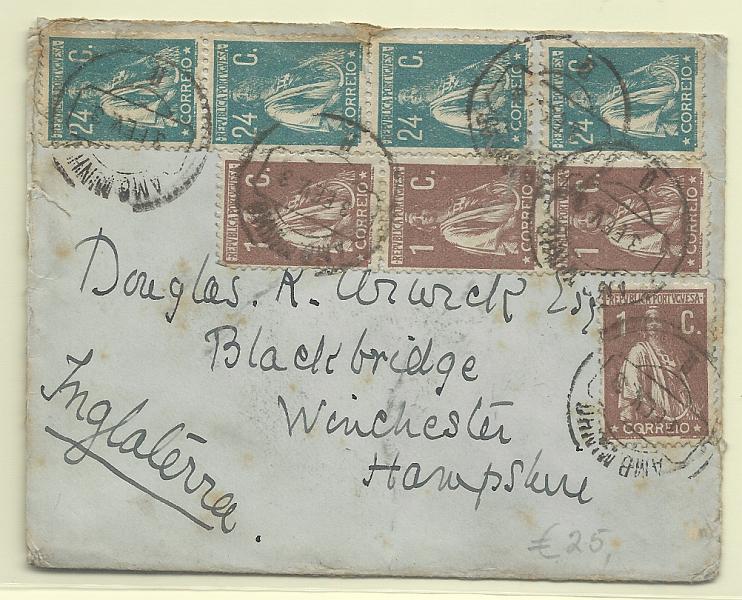 24 C. REPUBLICA PORTUGUESA CORREIO
24 C. REPUBLICA PORTUGUESA CORREIO
24 C. REPUBLICA PORTUGUESA CORREIO
24 C. REPUBLICA PORTUGUESA CORREIO
1 C. REPUBLICA PORTUGUESA CORREIO
1 C. REPUBLICA PORTUGUESA CORREIO
1 C. REPUBLICA PORTUGUESA CORREIO
REPUBLICA PORTUGUESA
1 C.
CORREIO
AMB MINHO
Douglas. K. Urwick Esq
Blackbridge
Winchester
Hampshire
Inglatérra.
£25,